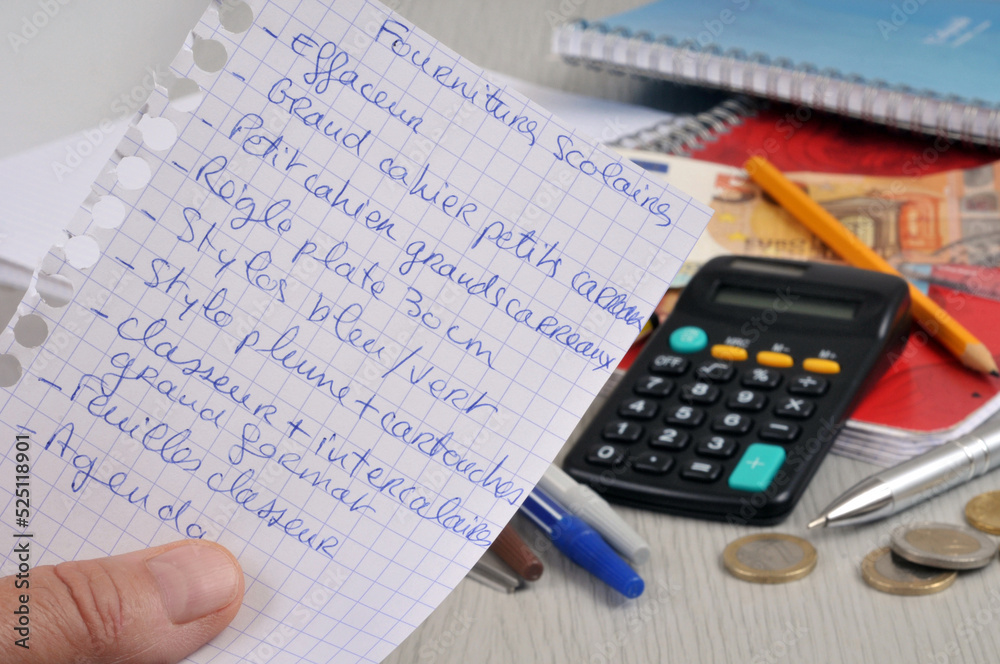 Fournitures Scolaires
- Effaceur
- Grand cahier petits carreaux
- Petit cahier grands carreaux
- Règle plate 30 cm
- Stylos bleu / vert
- Stylo plume + cartouches
- Classeur + intercalaires
grand format
- Feuilles classeur
- Agenda
EURO
MRC M- M+
OFF √ % ÷
7 8 9 ×
4 5 6 -
1 2 3 +
0 . =
Adobe Stock | #525118901